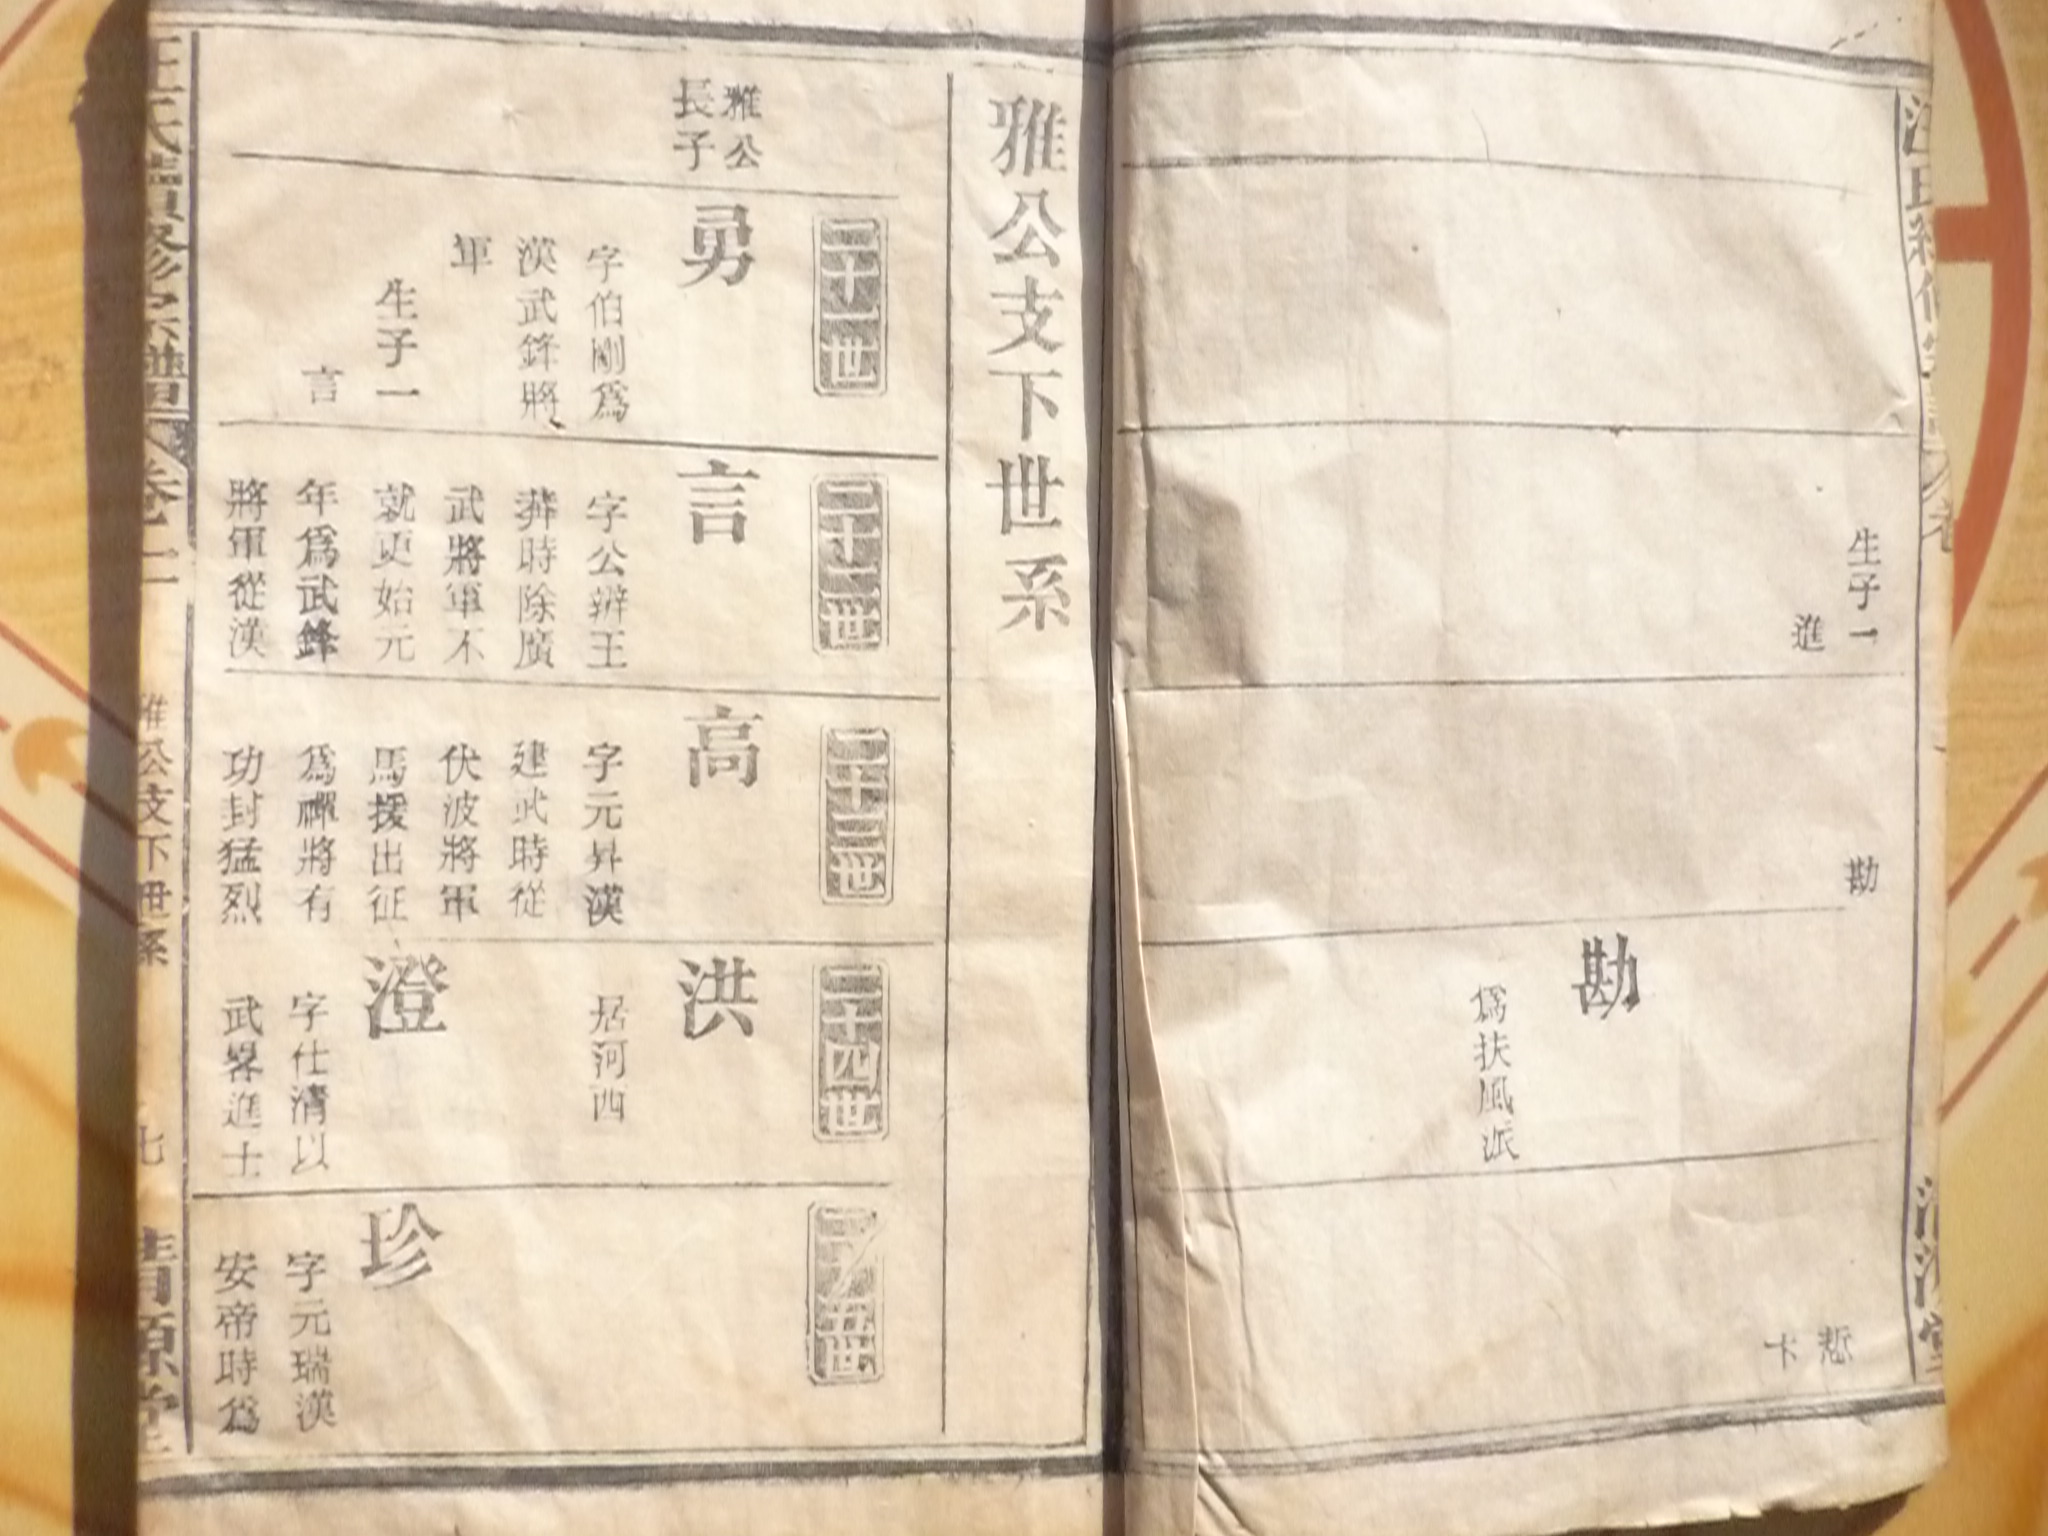 生子一
進
勘
勘
爲扶風派
恝
卞
雅公支下世系
雅公
長子
二十一世
勇
字伯剛爲
漢武鋒將
軍
生子一
言
二十二世
言
字公辨王
莽時除廣
武將軍不
就更始元
年爲武鋒
將軍從漢
二十三世
高
字元昇漢
建武時從
伏波將軍
馬援出征
爲裨將有
功封猛烈
二十四世
洪
居河西
澄
字仕清以
武畧進士
二十五世
珍
字元瑞漢
安帝時爲
汪氏續修宗譜
卷一
雅公支下世系
七
清源堂